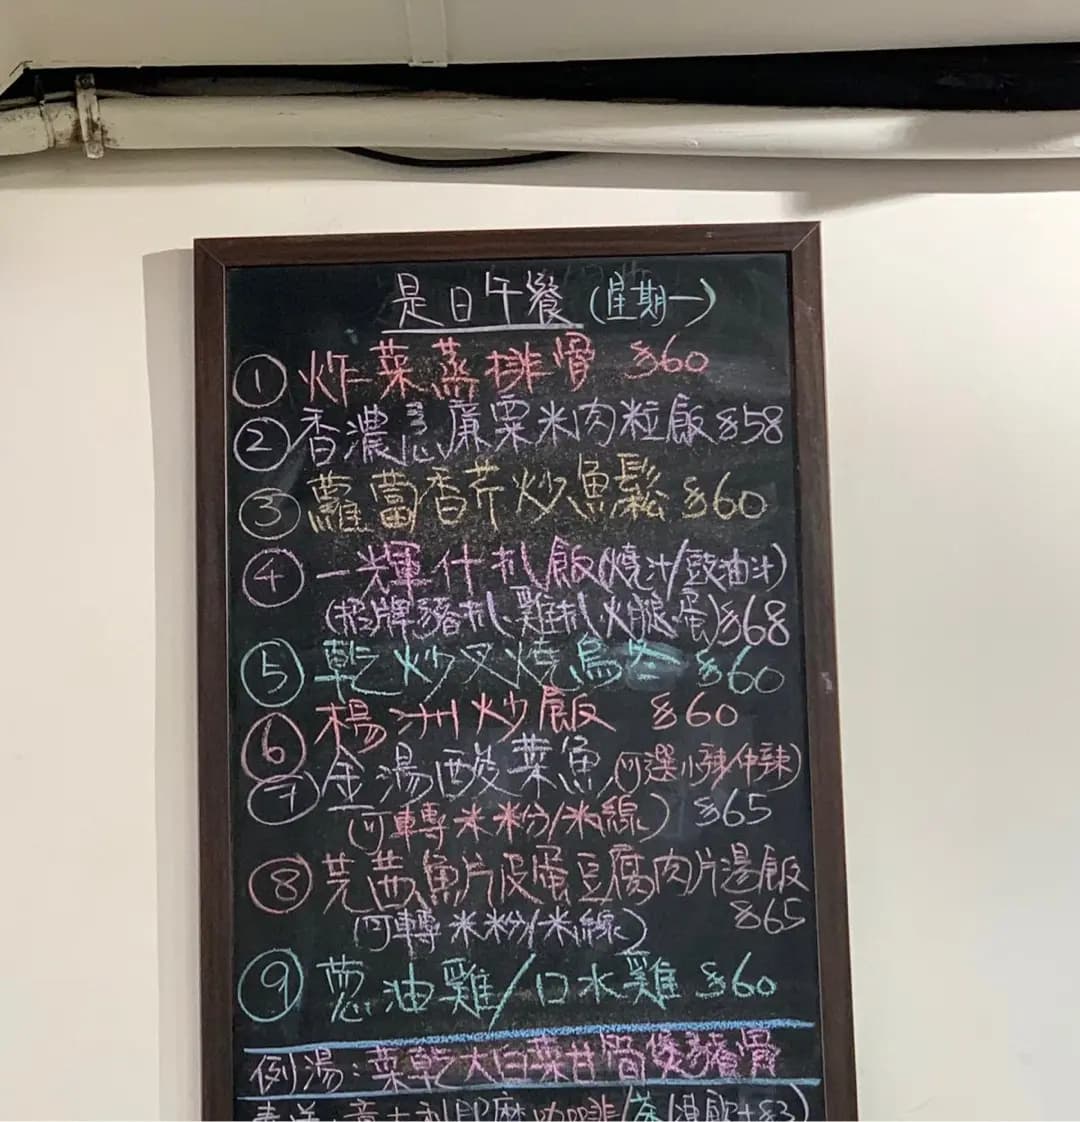 是日午餐(星期一)
① 炸菜蒸排骨 $60
② 香濃忌廉粟米肉粒飯$58
③ 蘿蔔香芹炒魚鬆 $60
④ 一輝什扒飯(燒汁/豉油汁)
(招牌豬扒、雞扒、火腿、蛋)$68
⑤ 乾炒叉燒烏冬 $60
⑥ 楊洲炒飯 $60
⑦ 金湯酸菜魚(可選小辣/中辣)
(可轉米粉/米線) $65
⑧ 芫茜魚片皮蛋豆腐肉片湯飯
$65
(可轉米粉/米線)
⑨ 蔥油雞/口水雞 $60
例湯:菜乾大白菜甘筒煲豬骨
意大利即磨咖啡/茶(凍飲+$3)